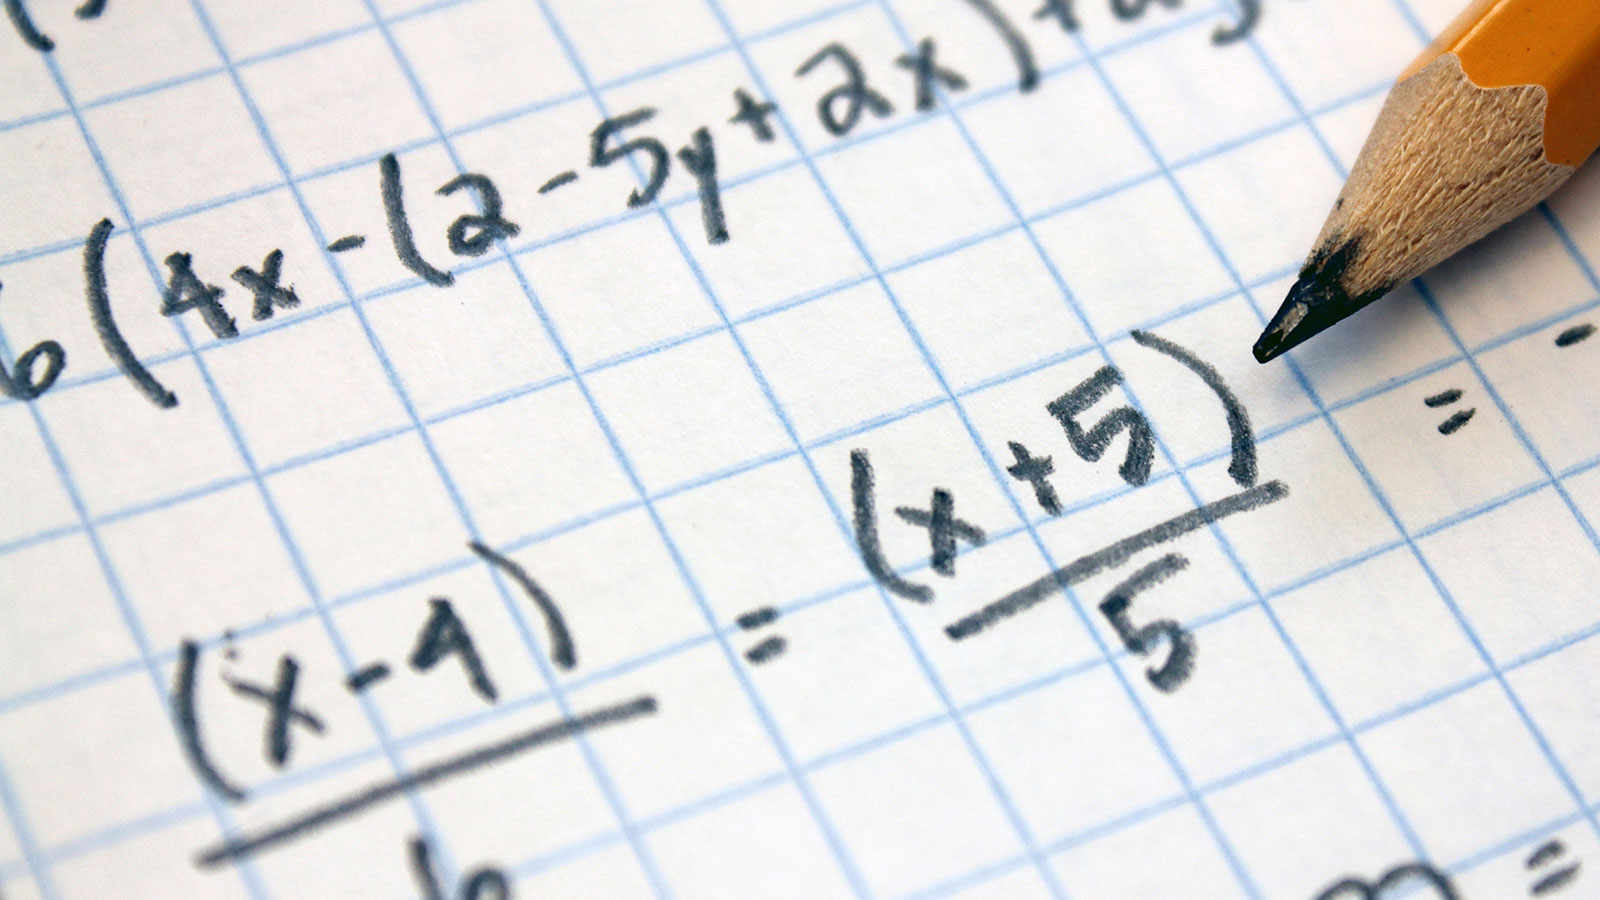 6(4x-(2-5y+2x)+
(x-4)/6 = (x+5)/5 = -
=